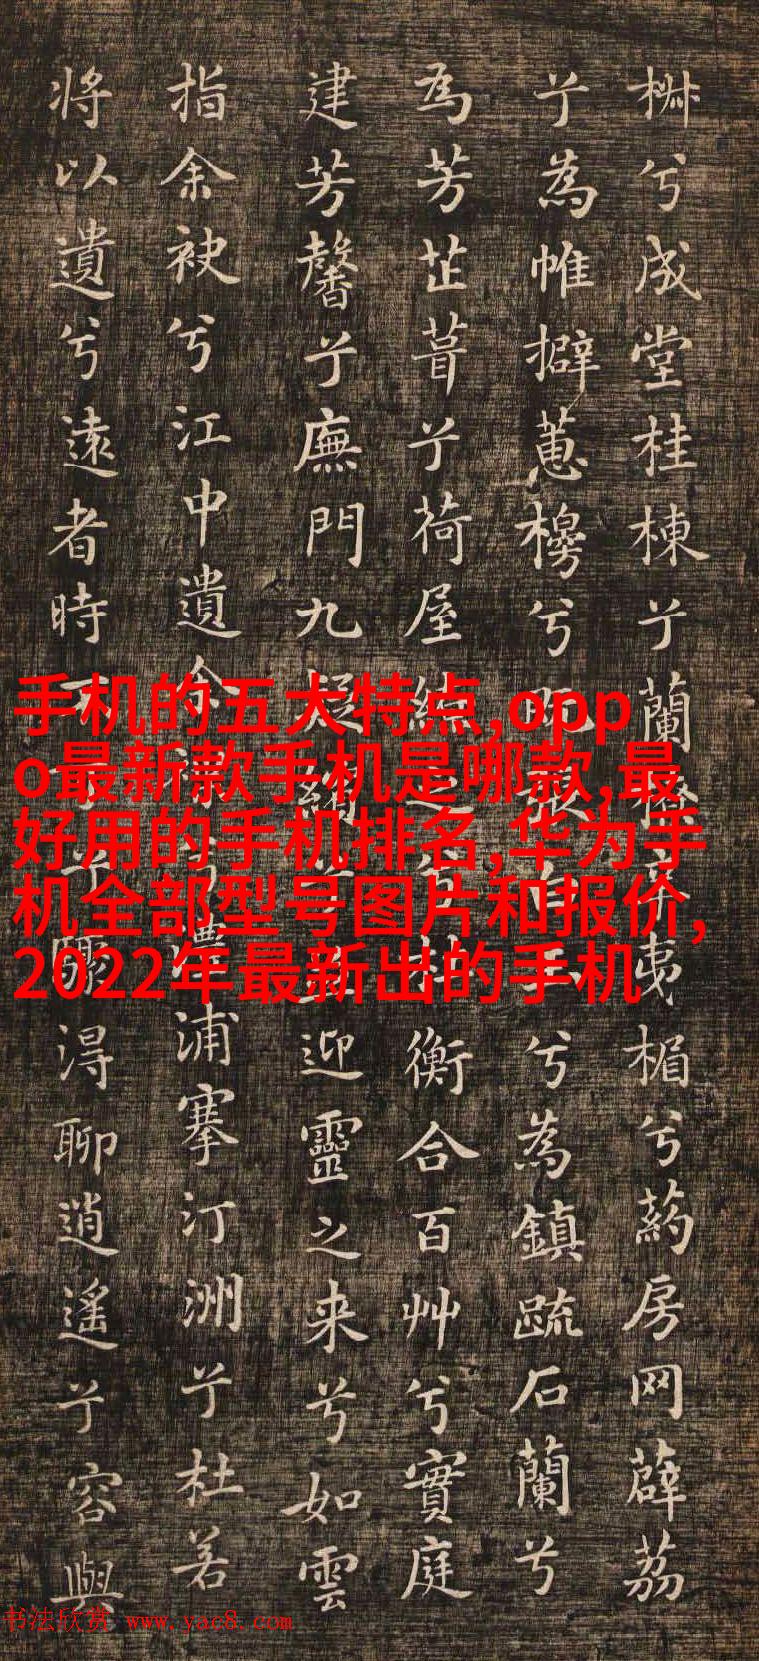 椒兮成堂桂棟兮蘭橑辛夷楣兮葯房网薜荔
兮為帷擗蕙櫋兮既張白玉兮為鎮疏石蘭兮
為芳芷葺兮荷屋繚之兮杜衡合百艸兮實庭
建芳馨兮廡門九疑繽兮並迎靈之来兮如雲
指余袂兮江中遺余褋兮澧浦搴汀洲兮杜若
將以遺兮遠者時不可兮驟得聊逍遙兮容與
手机的五大特点,opp
o最新款手机是哪款,最
好用的手机排名,华为手
机全部型号图片和报价,
2022年最新出的手机
书法欣赏 www.yac8.com